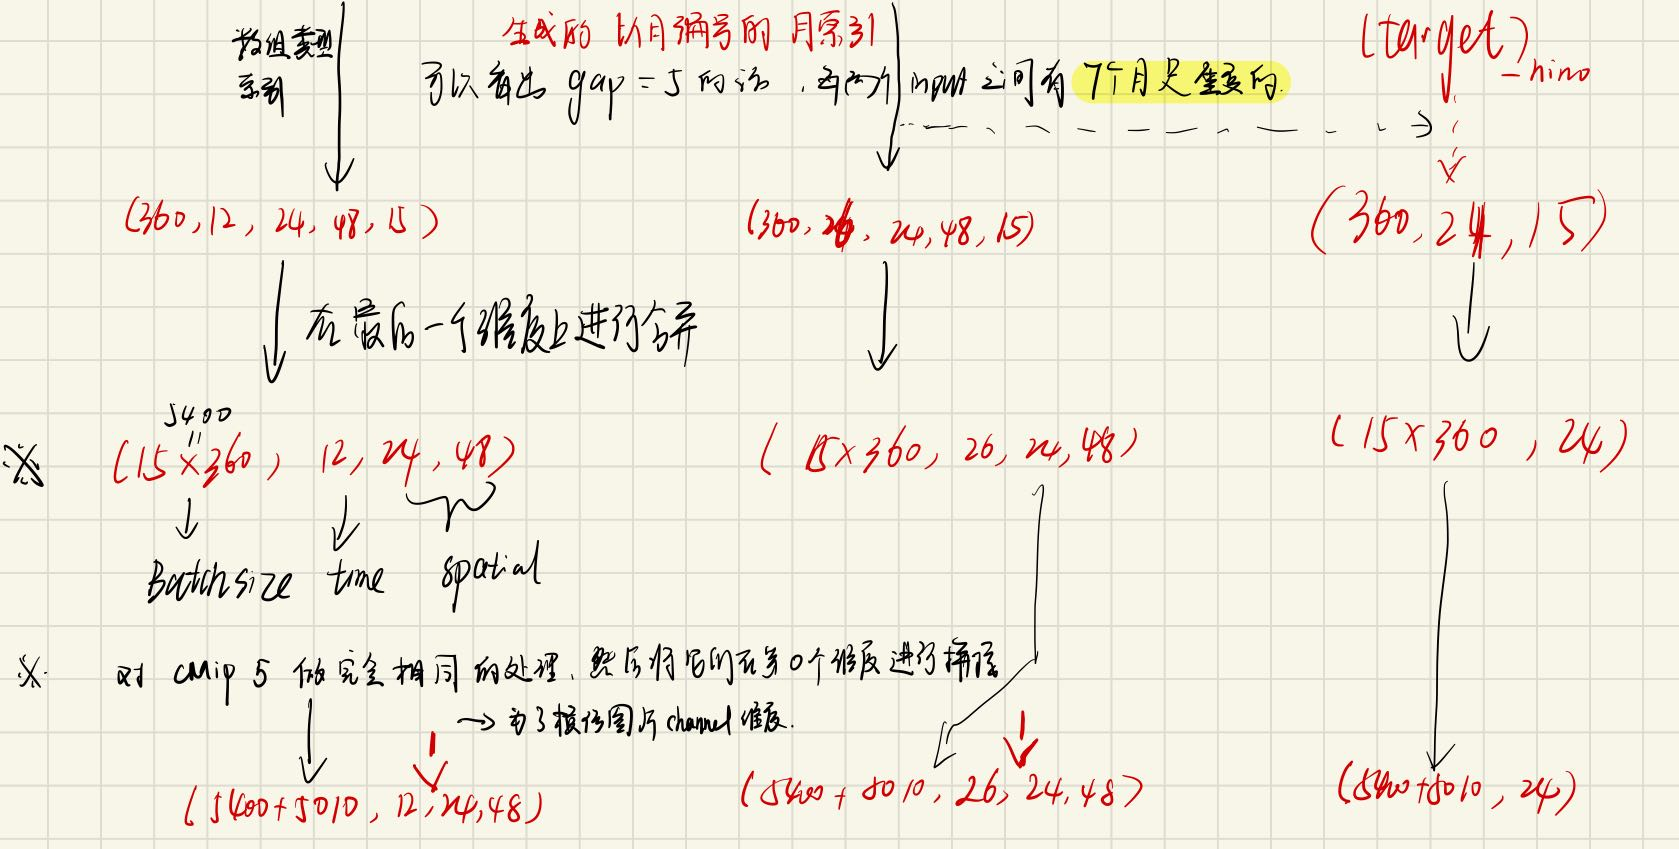 数组类型
索引
生成的 以月编号的 月索引
可以看出 gap = 5 的话, 每两个 input 之间有 7个月是重复的.
(target)
- nino
(360, 12, 24, 48, 15)
(360, 26, 24, 48, 15)
(360, 24, 15)
在最后一个维度上进行合并
5400
=
※ (15 × 360, 12, 24, 48)
(15 × 360, 26, 24, 48)
(15 × 360, 24)
Batchsize time spatial
※ 对 cmip 5 做完全相同的处理, 然后将它们在第 0 个维度进行拼接
→ 为了模仿图片 channel 维度.
(5400 + 5010, 12, 24, 48)
(5400 + 5010, 26, 24, 48)
(5400 + 5010, 24)